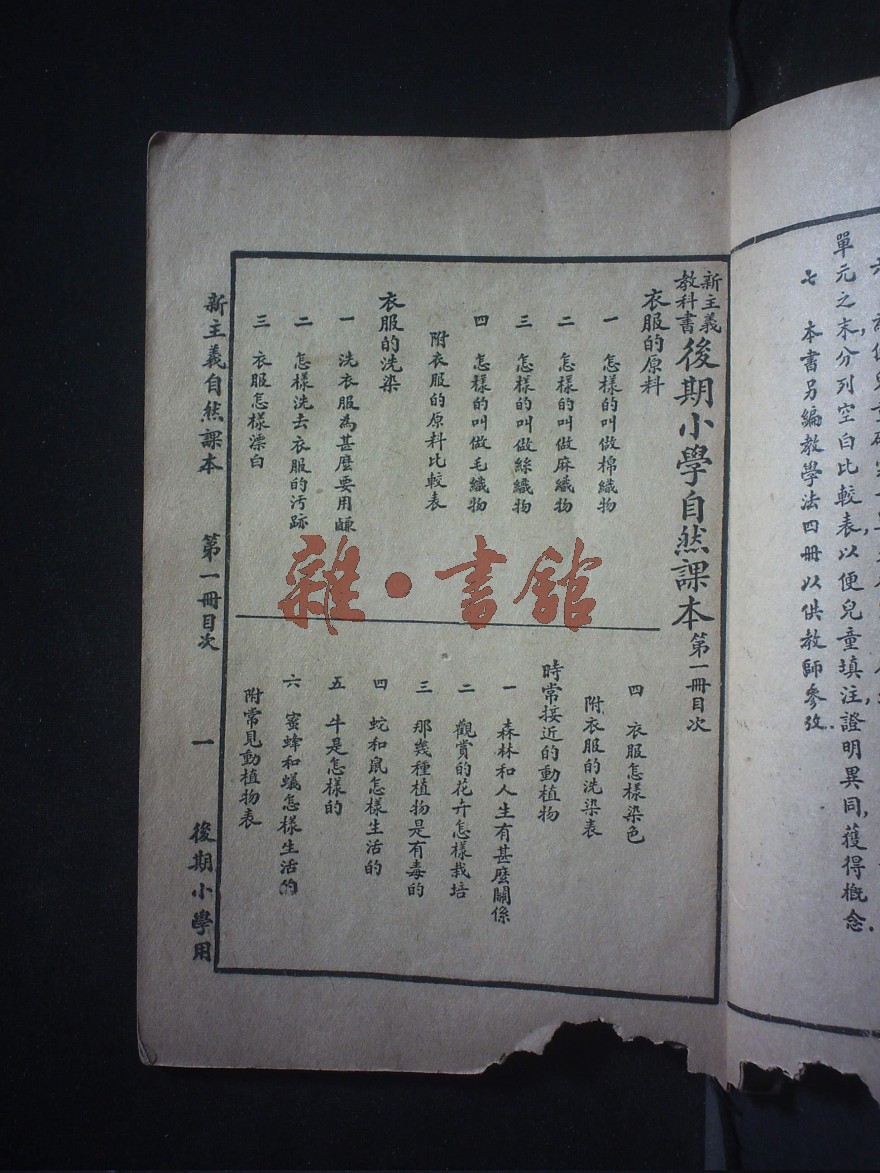 單元之末,分列空白比較表,以便兒童填注,證明異同,獲得概念.
七 本書另編教學法四冊以供教師參攷.
新主義教科書 後期小學自然課本 第一冊目次
衣服的原料
一 怎樣的叫做棉織物
二 怎樣的叫做麻織物
三 怎樣的叫做絲織物
四 怎樣的叫做毛織物
附衣服的原料比較表
衣服的洗染
一 洗衣服為甚麼要用鹻
二 怎樣洗去衣服的汚跡
三 衣服怎樣漂白
四 衣服怎樣染色
附衣服的洗染表
時常接近的動植物
一 森林和人生有甚麼關係
二 觀賞的花卉怎樣栽培
三 那幾種植物是有毒的
四 蛇和鼠怎樣生活的
五 牛是怎樣的
六 蜜蜂和蟻怎樣生活的
附常見動植物表
新主義自然課本 第一冊目次 一 後期小學用
雜·書館